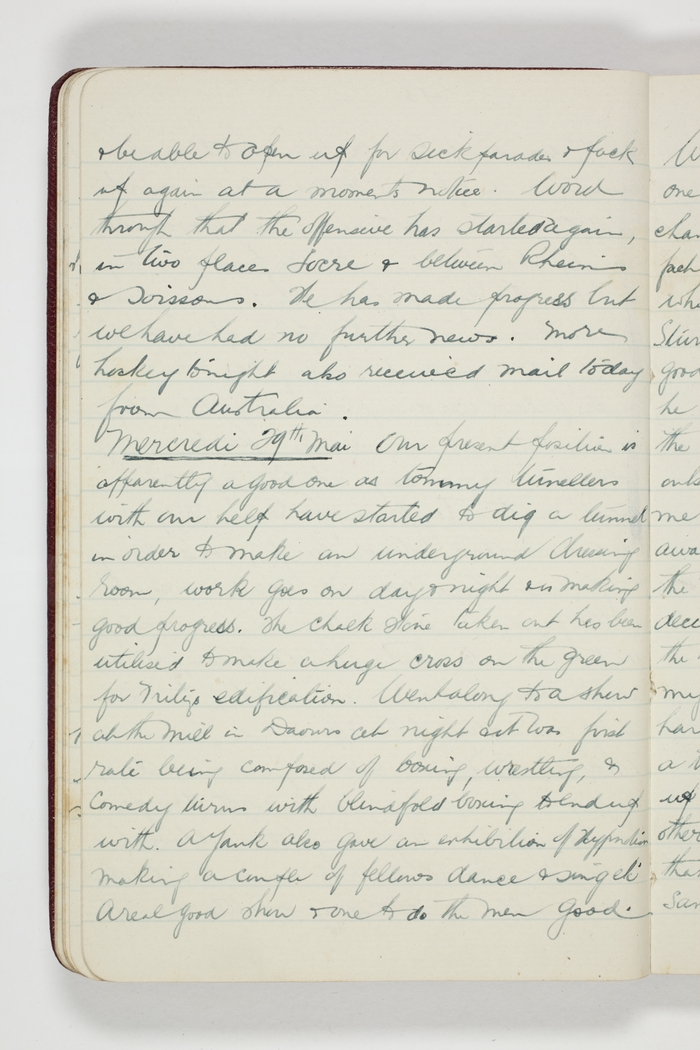 & be able to open up for sick parades & pack
up again at a moments notice. Word
through that the offensive has started again,
in two places Locre & between Rheims
& Soissons. He has made progress but
we have had no further news. More
hockey tonight also received mail today
from Australia.
Mercredi 29th Mai Our present position is
apparently a good one as tommy tunellers
with our help have started to dig a tunnel
in order to make an underground dressing
room, work goes on day & night & is making
good progress. The chalk stone taken out has been
utilised to make a huge cross on the green
for Fritzs edification. Went along to a show
at the Mill in Daours at night & it was first
rate being composed of boxing, wrestling, &
Comedy turns with blindfold boxing to end up
with. A Yank also gave an exhibition of Hypnotism
making a couple of fellows dance & sing etc
A real good show & one to do the men good.
one
he
the
me
the
the
a
up